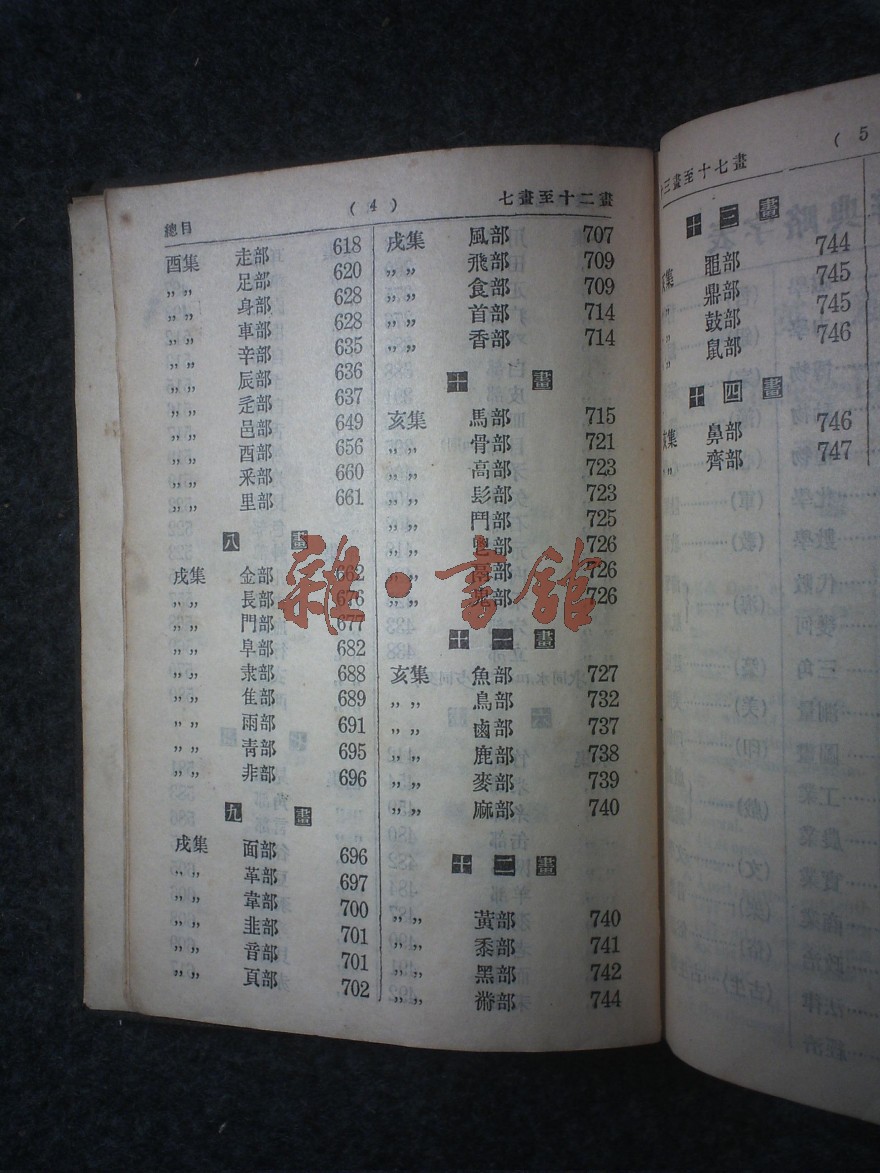 總目 (4) 七畫至十二畫
酉集 走部 618
〃〃 足部 620
〃〃 身部 628
〃〃 車部 628
〃〃 辛部 635
〃〃 辰部 636
〃〃 辵部 637
〃〃 邑部 649
〃〃 酉部 656
〃〃 釆部 660
〃〃 里部 661
八畫
戌集 金部 662
〃〃 長部 676
〃〃 門部 677
〃〃 阜部 682
〃〃 隶部 688
〃〃 隹部 689
〃〃 雨部 691
〃〃 青部 695
〃〃 非部 696
九畫
戌集 面部 696
〃〃 革部 697
〃〃 韋部 700
〃〃 韭部 701
〃〃 音部 701
〃〃 頁部 702
戌集 風部 707
〃〃 飛部 709
〃〃 食部 709
〃〃 首部 714
〃〃 香部 714
十畫
亥集 馬部 715
〃〃 骨部 721
〃〃 高部 723
〃〃 髟部 723
〃〃 鬥部 725
〃〃 鬯部 726
〃〃 鬲部 726
〃〃 鬼部 726
十一畫
亥集 魚部 727
〃〃 鳥部 732
〃〃 鹵部 737
〃〃 鹿部 738
〃〃 麥部 739
〃〃 麻部 740
十二畫
〃〃 黃部 740
〃〃 黍部 741
〃〃 黑部 742
〃〃 黹部 744
雜·書館
(5
十三畫至十七畫
十三畫
亥集 黽部 744
〃 鼎部 745
〃 鼓部 745
〃 鼠部 746
十四畫
亥集 鼻部 746
〃 齊部 747